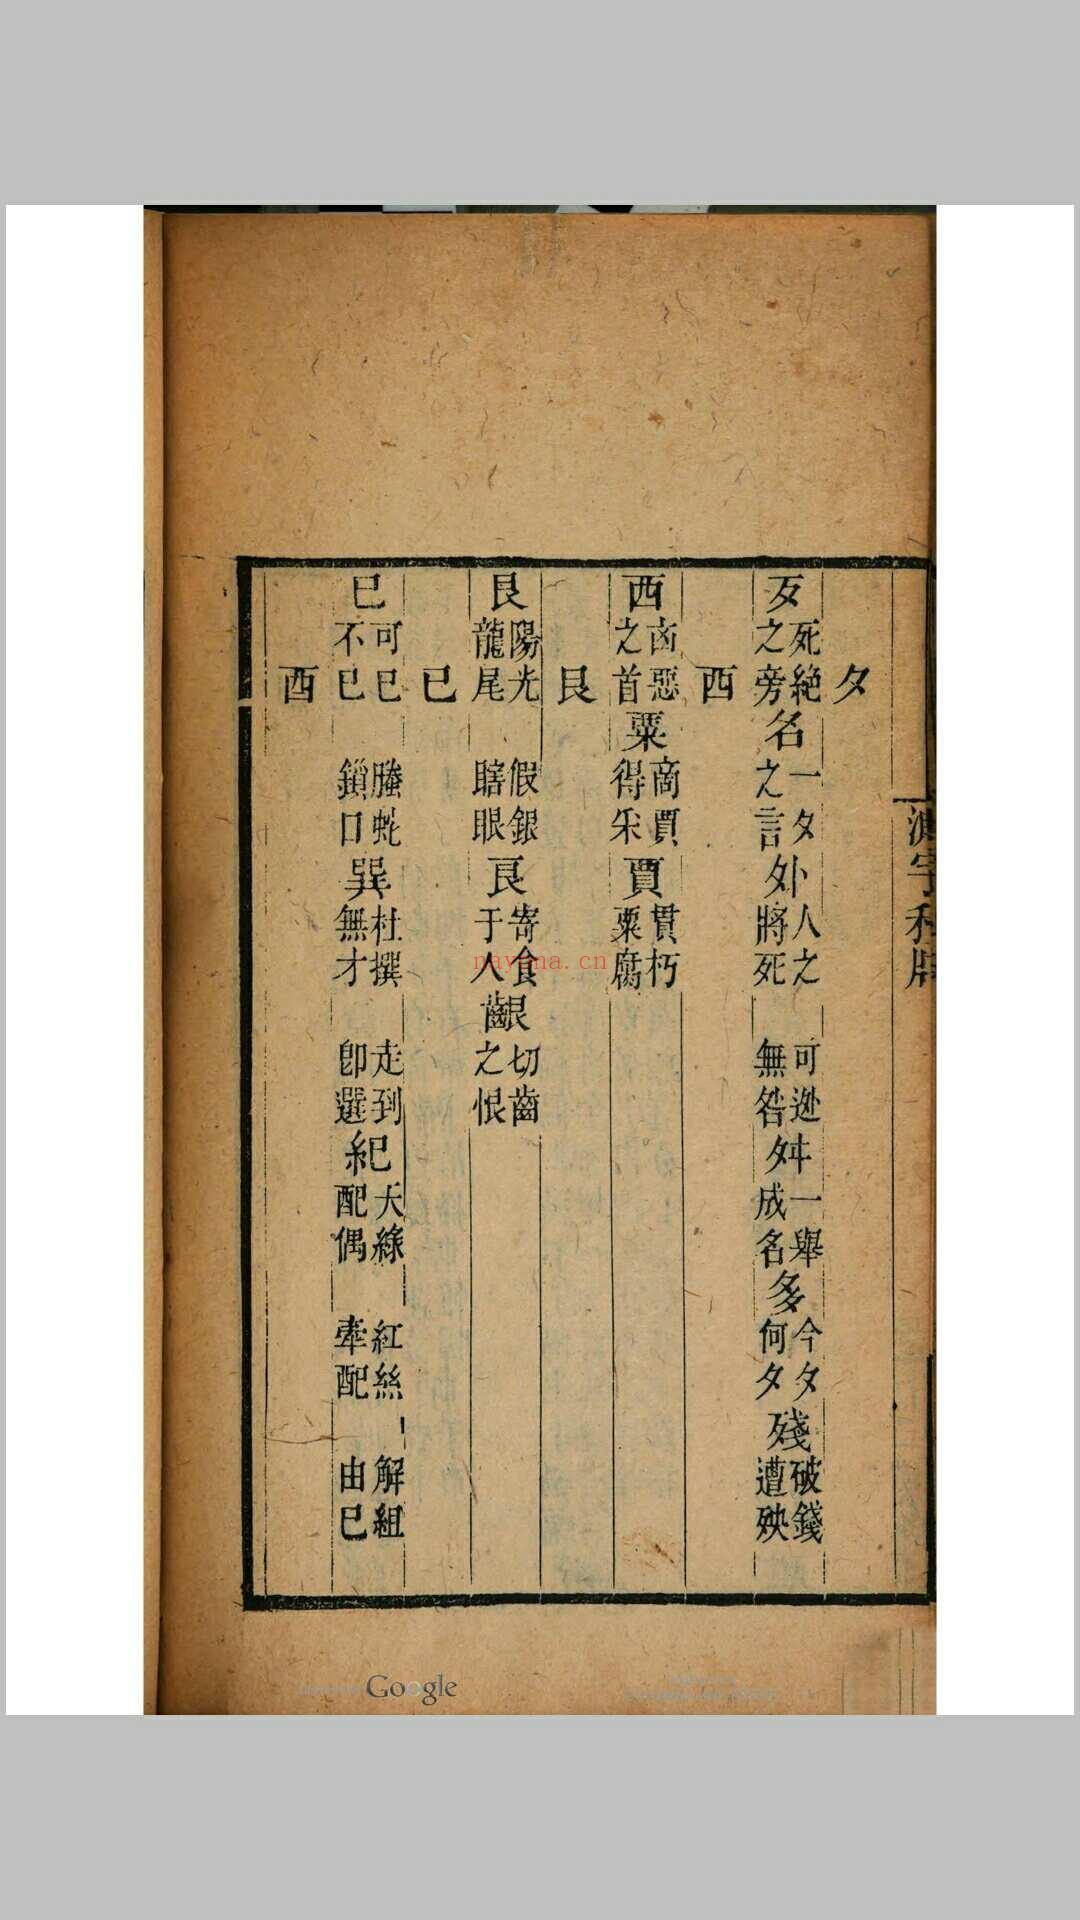 夕
歹死絕之旁名一夕之言外卜人之將死可逃無咎𡖈一舉成名多今夕何夕殘破錢遭殃
西
西卤惡之首粟商賈得米賈貫朽粟腐
艮
艮陽光龍尾假銀瞎眼良寄食于人齦切齒之恨
已
已可已不已螣蛇鎖口巽杜撰無才走到即選紀天緣配偶紅絲牽配解組由已
酉
nayona.cn
Google